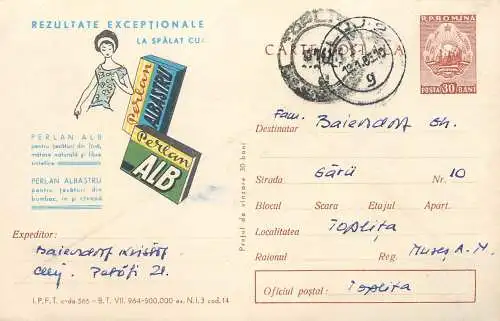 REZULTATE EXCEPȚIONALE
LA SPĂLAT CU:
Perlan
ALBASTRU
Perlan
ALB
PERLAN ALB
pentru țesături din lînă,
mătase naturală și fibre
sintetice
PERLAN ALBASTRU
pentru țesături din
bumbac, in și cînepă
Expeditor:
Baiersdorf Kristóf
Cluj. Petőfi 21.
I.P.F.T. c-da 565 - B.T. VII. 964-500,000 ex. N.I.3 cod.14
Prețul de vînzare 30 bani
CARTE POȘTALĂ
CLUJ-2
R.P.ROMINA
POSTA 30 BANI
Fam.
Destinatar Baiersdorf Gh.
Strada Gării Nr. 10
Blocul Scara Etajul Apart.
Localitatea Toplița
Raionul Reg. Mureș A.M.
Oficiul poștal: Toplița